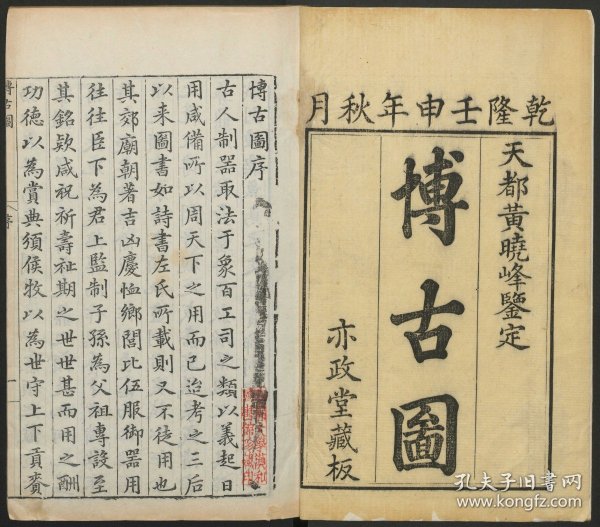 乾隆壬申年秋月
天都黃曉峰鑒定
博古圖
亦政堂藏板
博古圖序
古人制器取法于象百工司之類以義起日
用咸備所以周天下之用而已迨考之三后
以来圖書如詩書左氏所載則又不徒用也
其郊廟朝著吉凶慶恤鄉閭比伍服御器用
往往臣下為君上監制子孫為父祖專設至
其銘欵咸祝祈壽祉期之世世甚而用之酬
功德以為賞典須侯牧以為世守上下貢賚
博古圖
序
一
孔夫子旧书网
www.kongfz.com